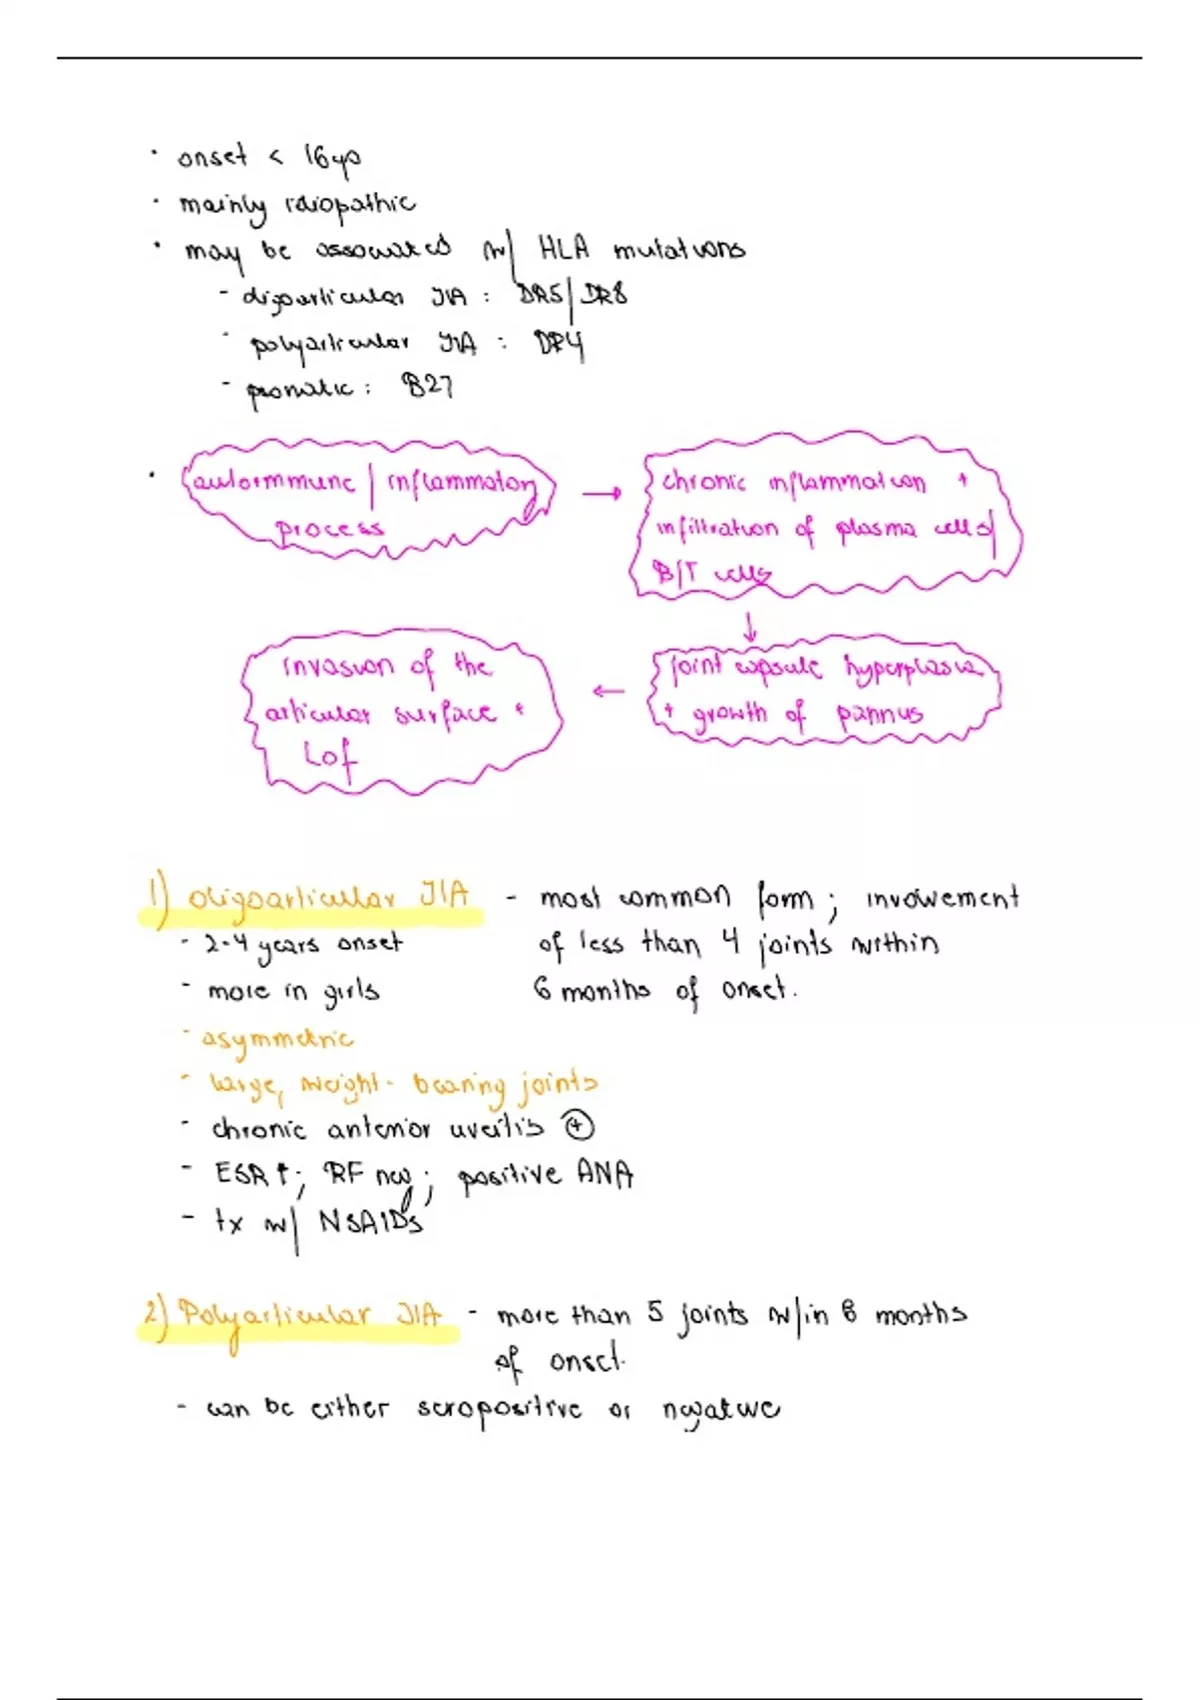 • onset < 16yo
• mainly idiopathic
• may be associated w/ HLA mutations
- oligoarticular JIA : DR5/DR8
- polyarticular JIA : DR4
- psoriatic : B27
• autoimmune/inflammatory
process
→
chronic inflammation +
infiltration of plasma cells/
B/T cells
↓
joint capsule hyperplasia
+ growth of pannus
←
invasion of the
articular surface +
Lof
1) Oligoarticular JIA - most common form; involvement
of less than 4 joints within
6 months of onset.
- 2-4 years onset
- more in girls
- asymmetric
- large, weight-bearing joints
- chronic anterior uveitis ⊕
- ESR↑; RF neg; positive ANA
- tx w/ NSAIDs
2) Polyarticular JIA - more than 5 joints w/in 6 months
of onset.
- can be either seropositive or negative